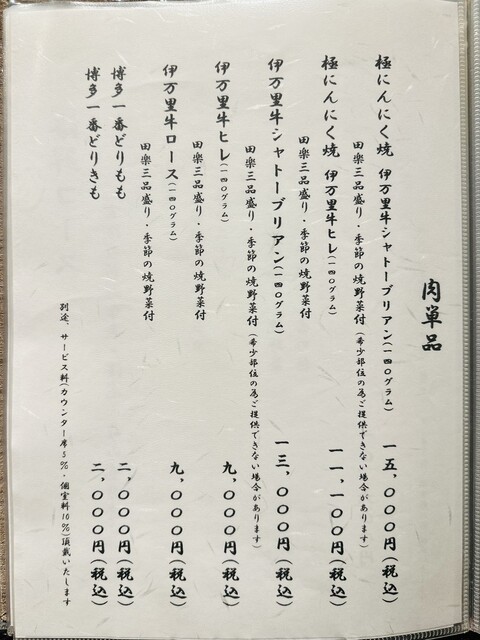 肉単品
極にんにく焼 伊万里牛シャトーブリアン(一四〇グラム) 一五,〇〇〇円(税込)
田楽三品盛り・季節の焼野菜付(希少部位の為ご提供できない場合があります)
極にんにく焼 伊万里牛ヒレ(一四〇グラム) 一一,一〇〇円(税込)
田楽三品盛り・季節の焼野菜付
伊万里牛シャトーブリアン(一四〇グラム) 一三,〇〇〇円(税込)
田楽三品盛り・季節の焼野菜付(希少部位の為ご提供できない場合があります)
伊万里牛ヒレ(一四〇グラム) 九,〇〇〇円(税込)
田楽三品盛り・季節の焼野菜付
伊万里牛ロース(一四〇グラム) 九,〇〇〇円(税込)
田楽三品盛り・季節の焼野菜付
博多一番どりもも 二,〇〇〇円(税込)
博多一番どりきも 二,〇〇〇円(税込)
別途、サービス料(カウンター席5%・個室料10%)頂戴いたします